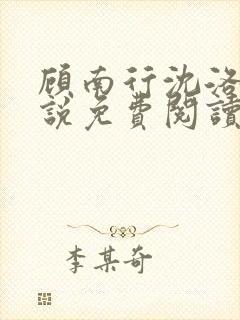 顾南行沈洛
說免費閱讀
李某奇